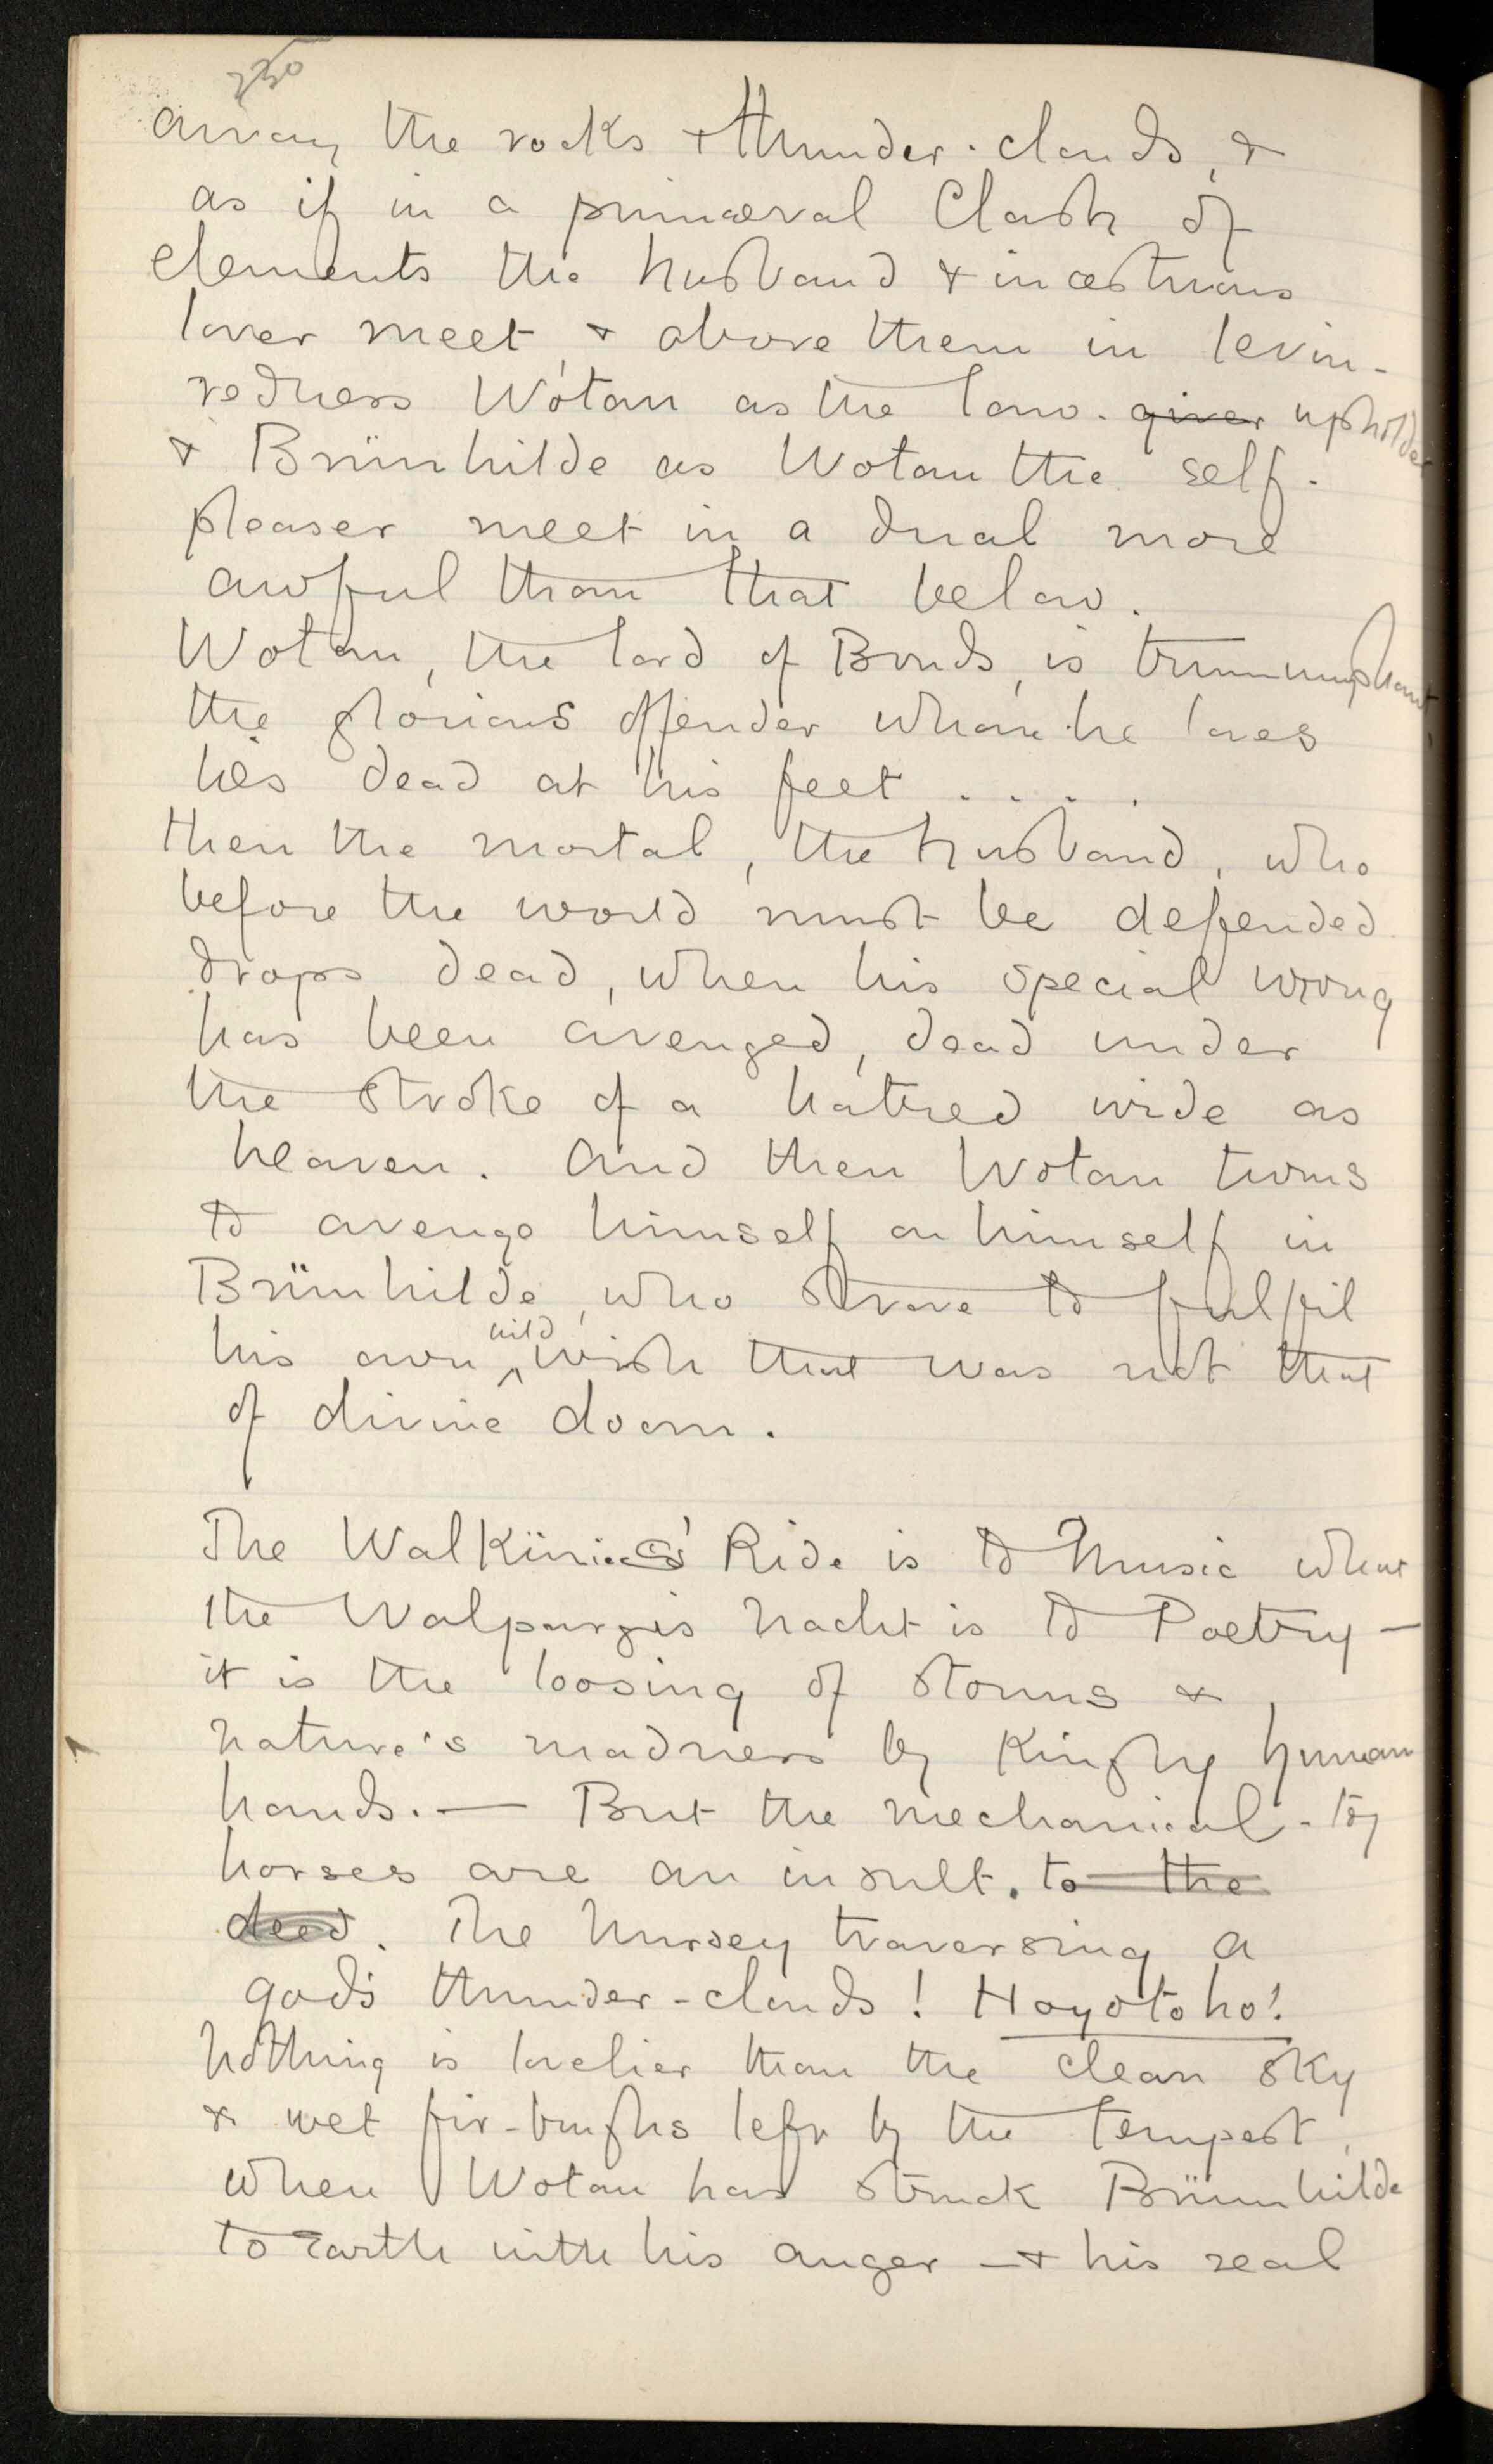 230
away the rocks + thunder-clouds, &
as if in a primæval Clash of
elements the husband & incestuous
lover meet, & above them in levin-
redness Wotan as the law-giver upholder
& Brünhilde as Wotan the self-
pleaser meet in a dual more
awful than that below.
Wotan, the lord of Bonds, is triumphant,
the glorious offender whom he loves
lies dead at his feet ....
then the mortal, the husband, who
before the world must be defended
drops dead, when his special wrong
has been avenged, dead under
the stroke of a hatred wide as
heaven. And then Wotan turns
to avenge himself on himself in
Brünhilde, who strove to fulfil
his own wild wish that was not that
of divine doom.
The Walküries' Ride is to Music what
the Walpurgis Nacht is to Poetry —
it is the loosing of storms &
nature's madness by Kingly human
hands. — But the mechanical-toy
horses are an insult. to the
deed. The Nursey traversing a
god's thunder-clouds! Hoyotoho!
Nothing is lovelier than the clean sky
& wet fir-boughs left by the tempest,
when Wotan has struck Brünnhilde
to Earth with his anger — & his real